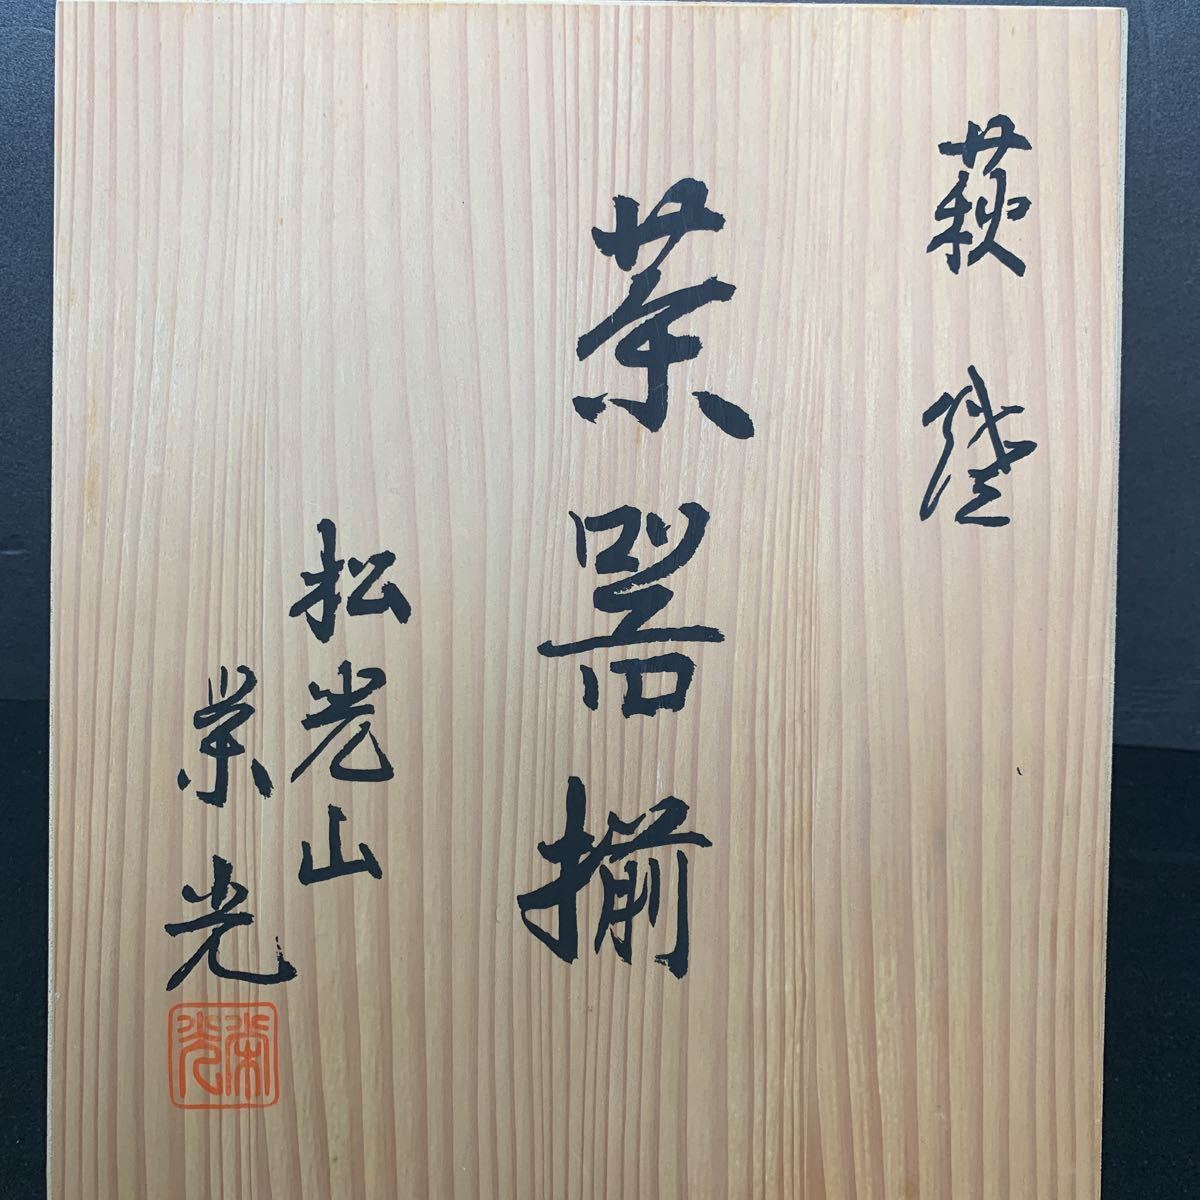 萩燒
茶器揃
松光山
栄光
栄光